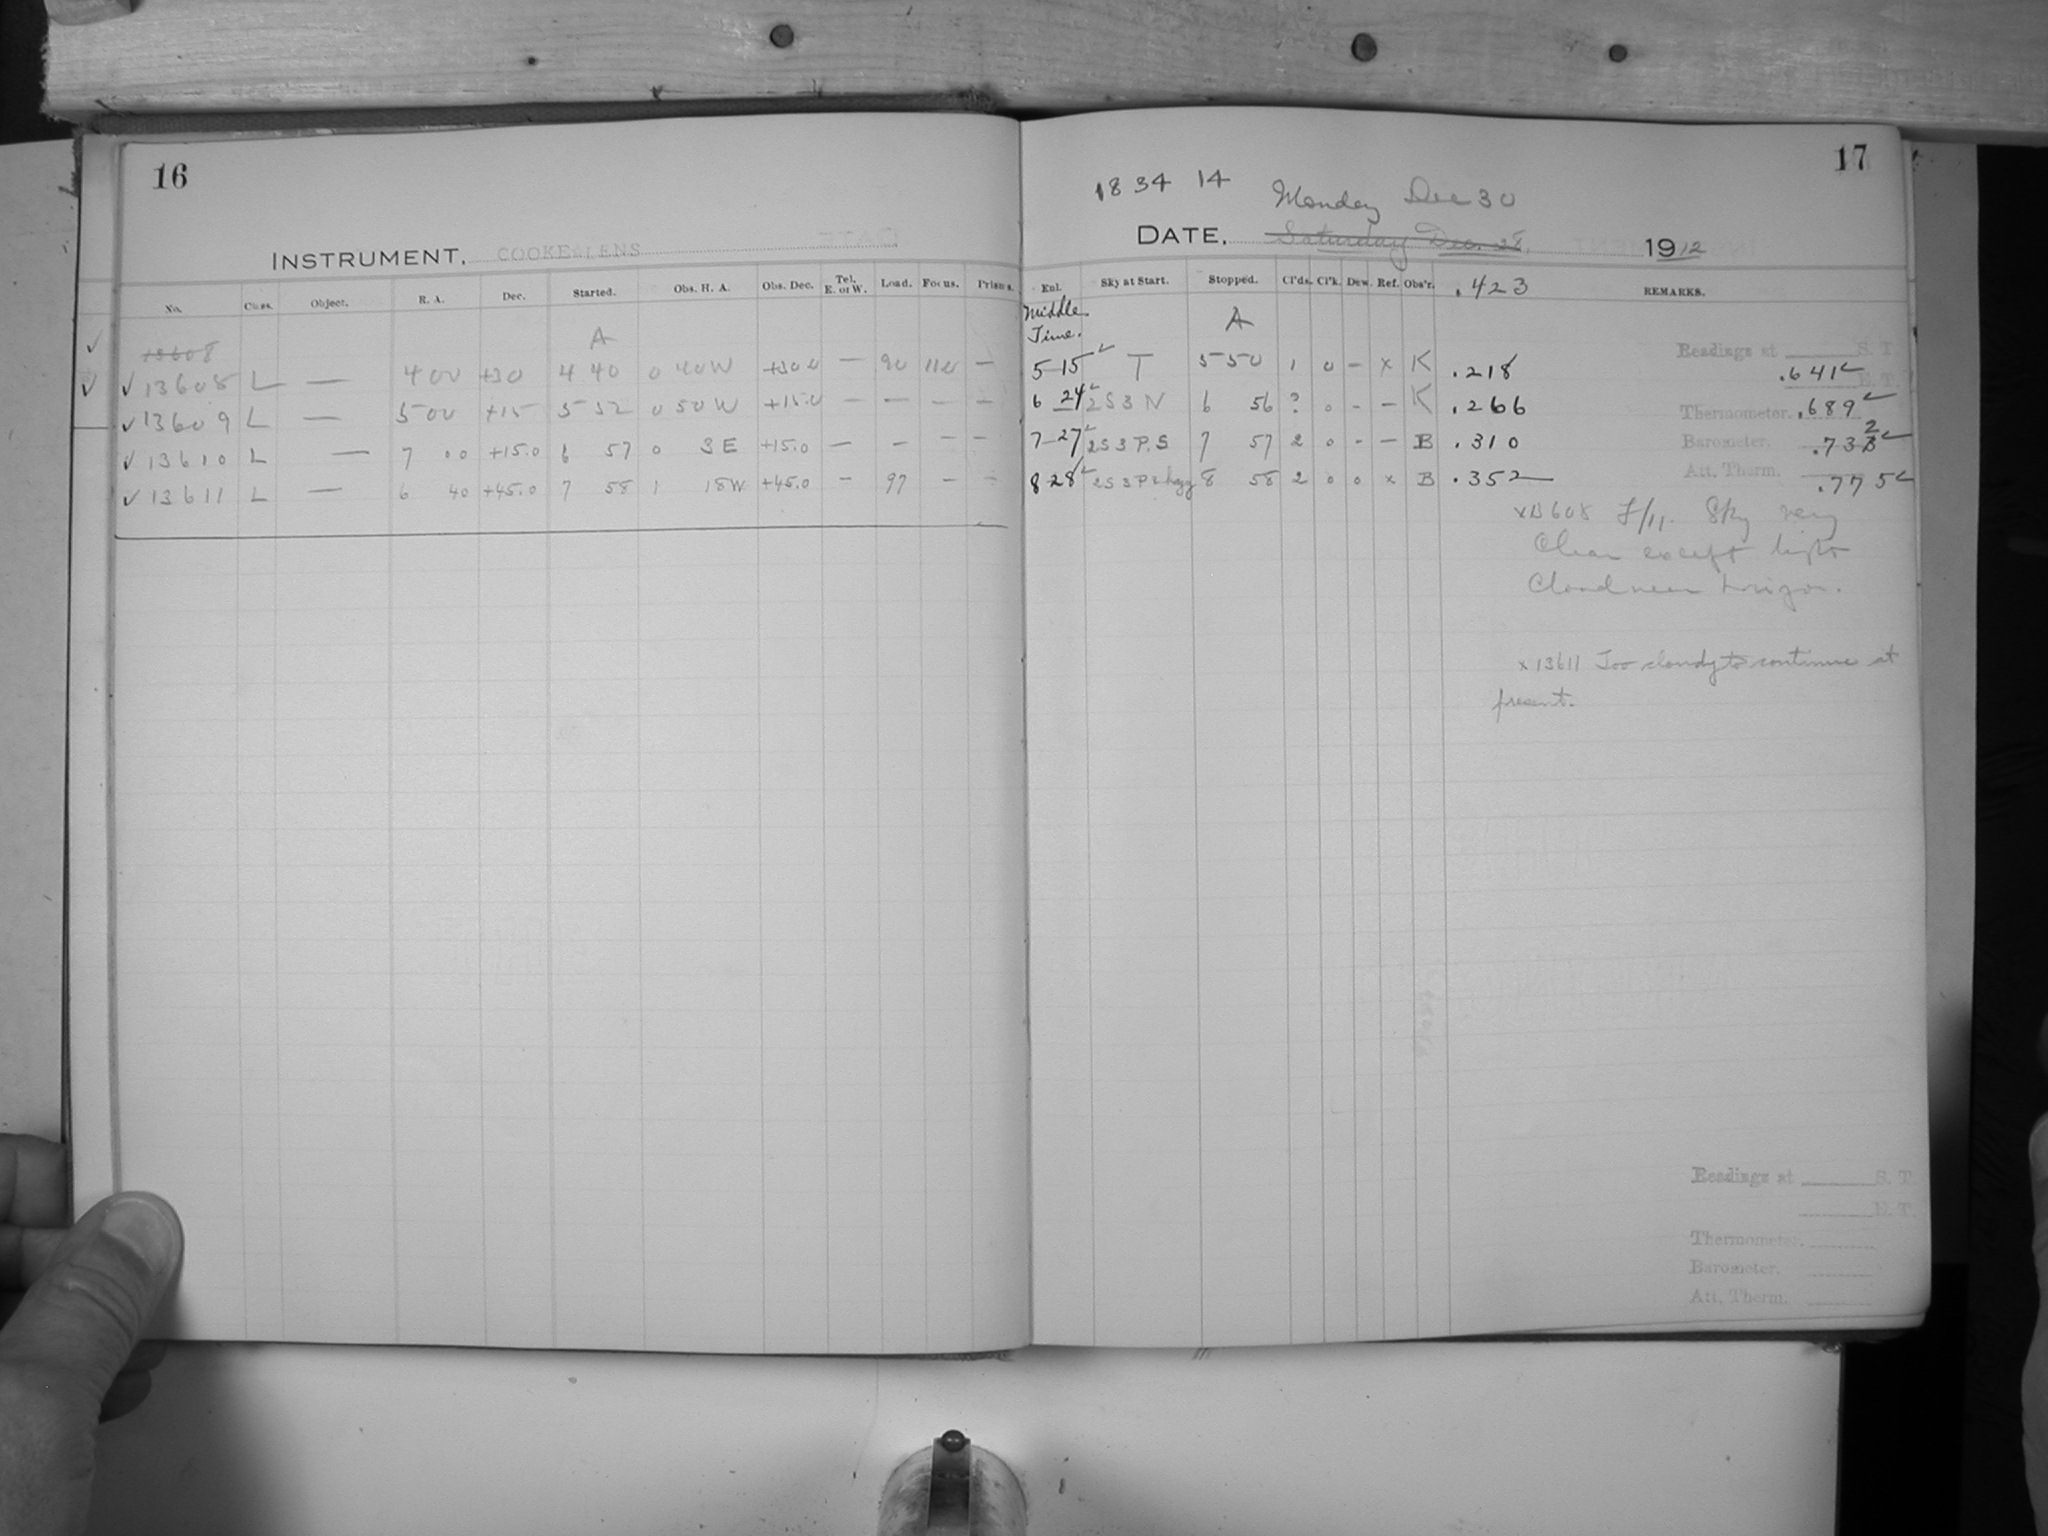 16
INSTRUMENT, COOKE LENS
No. Class. Object. R. A. Dec. Started. Obs. H. A. Obs. Dec. Tel. E. or W. Load. Focus. Prisms.
A
13608
✓ 13608 L — 4 00 +30 4 40 0 40 W +30.0 — 90 110 —
✓ 13609 L — 5 00 +15 5 52 0 50 W +15.0 — — — —
✓ 13610 L — 7 00 +15.0 6 57 0 3 E +15.0 — — — —
✓ 13611 L — 6 40 +45.0 7 58 1 18 W +45.0 — 97 — —
17
18 34 14 Monday Dec 30
DATE, Saturday Dec. 28, 1912
Exl. Sky at Start. Stopped. Cl'ds. Cl'k. Dew. Ref. Obs'r. .423 REMARKS.
Middle
Time. A
Readings at S. T.
5 15 T 5 50 1 0 – x K .218 .641 E. T.
6 24 2S3 N 6 56 ? 0 - – K .266 Thermometer. .689
7 27 2S3 P.S 7 57 2 0 - – B .310 Barometer. .732
8 28 2S3P2 hazy 8 58 2 0 0 x B .352 Att. Therm. .775
x13608 F/11. Sky very
Clear except light
Cloud near horizon.
x 13611 Too cloudy to continue at
present.
Readings at S. T.
E. T.
Thermometer.
Barometer.
Att. Therm.